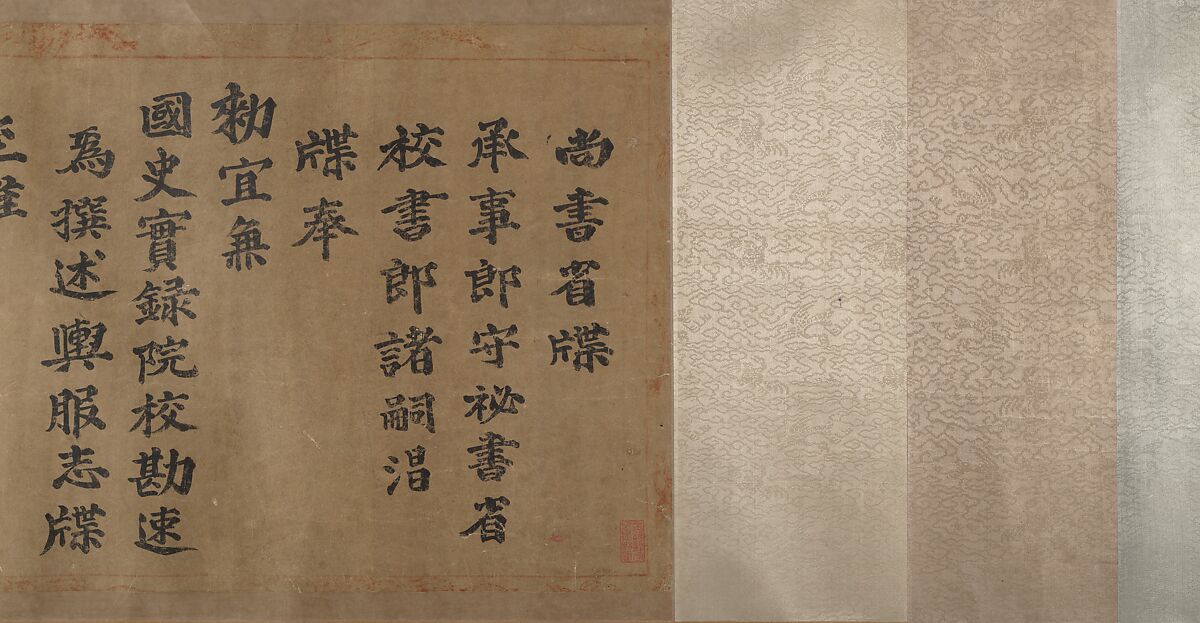 尚書省牒
承事郎守祕書省
校書郎諸嗣淐
牒奉
勑宜兼
國史實録院校勘速
為撰述輿服志牒
至准